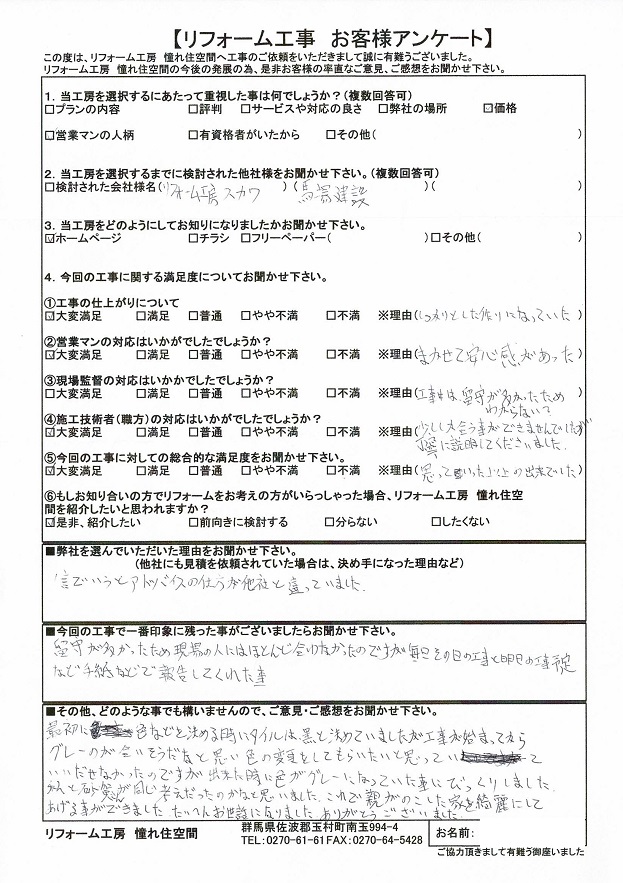 【リフォーム工事 お客様アンケート】
この度は、リフォーム工房 憧れ住空間へ工事のご依頼をいただきまして誠に有難うございました。
リフォーム工房 憧れ住空間の今後の発展の為、是非お客様の率直なご意見、ご感想をお聞かせ下さい。
1．当工房を選択するにあたって重視した事は何でしょうか？(複数回答可)
□プランの内容 □評判 □サービスや対応の良さ □弊社の場所 ☑価格
□営業マンの人柄 □有資格者がいたから □その他( )
2．当工房を選択するまでに検討された他社様をお聞かせ下さい。(複数回答可)
□検討された会社様名(リフォーム工房スカワ) (馬場建設 )( )
3．当工房をどのようにしてお知りになりましたかお聞かせ下さい。
☑ホームページ □チラシ □フリーペーパー( )□その他( )
4．今回の工事に関する満足度についてお聞かせ下さい。
①工事の仕上がりについて
☑大変満足 □満足 □普通 □やや不満 □不満 ※理由(しっかりとした作りになっていた)
②営業マンの対応はいかがでしたでしょうか？
☑大変満足 □満足 □普通 □やや不満 □不満 ※理由(まかせて安心感があった)
③現場監督の対応はいかかでしたでしょうか？
□大変満足 □満足 □普通 □やや不満 □不満 ※理由(工事中は留守が多かったため
わからない？
④施工技術者(職方)の対応はいかがでしたでしょうか？
☑大変満足 □満足 □普通 □やや不満 □不満 ※理由(少ししか会う事ができませんでしたが
丁寧に説明してくださいました.
⑤今回の工事に対しての総合的な満足度をお聞かせ下さい。
☑大変満足 □満足 □普通 □やや不満 □不満 ※理由(思って以上の出来でした)
⑥もしお知り合いの方でリフォームをお考えの方がいらっしゃった場合、リフォーム工房 憧れ住空
間を紹介したいと思われますか？
☑是非、紹介したい □前向きに検討する □分らない □したくない
■弊社を選んでいただいた理由をお聞かせ下さい。
(他社にも見積を依頼されていた場合は、決め手になった理由など)
言でいうとアドバイスの仕方が他社と違っていました.
■今回の工事で一番印象に残った事がございましたらお聞かせ下さい。
留守が多かったため現場の人にはほとんど会わなかったのですが毎日その日の工事と明日の工事予定
など手紙などで報告してくれた事
■その他、どのような事でも構いませんので、ご意見・ご感想をお聞かせ下さい。
最初に色などを決める時にタイルは黒と決めていましたが工事が始まってから
グレーのが合いそうだなと思い色の変更をしてもらいたいと思ってい て
いいだせなかったのですが出来た時に色がグレーになっていた事にびっくりしました.
が同じ考えだったのかなと思いました. これで親がのこした家を綺麗にして
あげる事ができました たいへんお世話になりました ありがとうございました
リフォーム工房 憧れ住空間
群馬県佐波郡玉村町南玉994-4
TEL:0270-61-61 FAX:0270-64-5428
お名前:
ご協力頂きまして有難う御座いました